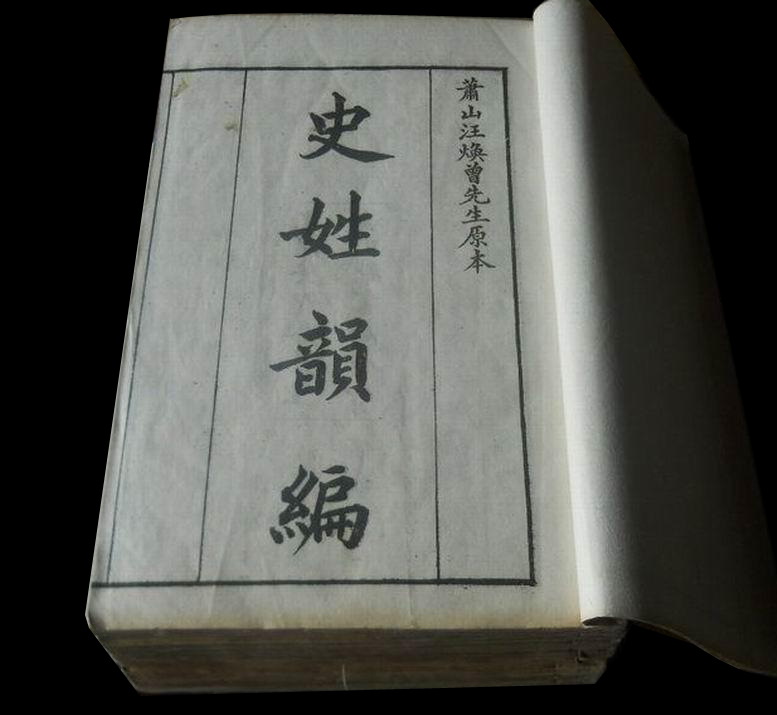 蕭山汪煥曾先生原本
史姓韻編